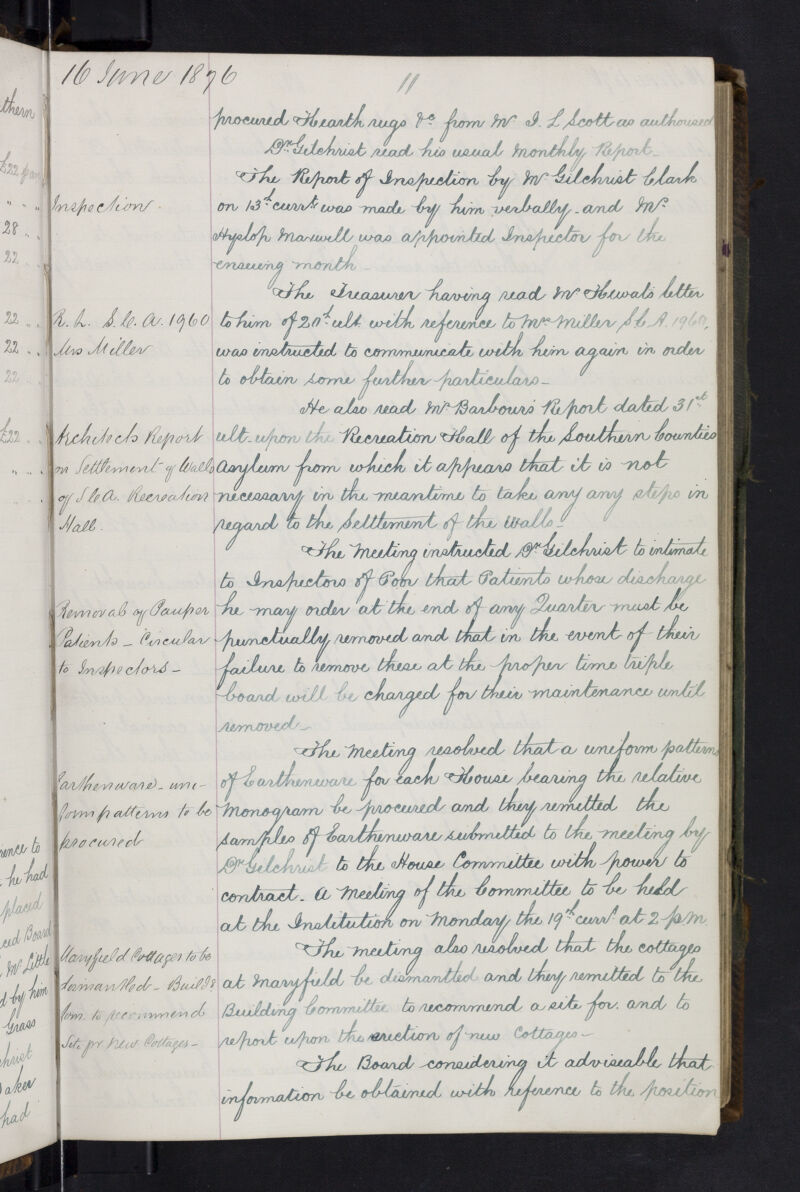 16 June 1876
11
procured Hearth rugs &c from Mr J. L Scott as authorised
Dr Gilchrist read his usual Monthly Report_
Inspection.
The Report of Inspection by Mr Gilchrist Clark
on 13th currt was made by him verbally. and Mr
Hyslop Maxwell was appointed Inspector for the
ensueing month_
R. L. S. C. A. 1960
Mrs Miller
The Treasurer having read Mr Hewat's letter
to him of 20th ult. with reference to Mrs Miller S C A. 1960,
was instructed to communicate with him again in order
to obtain some further particulars_
Architects Report
on Settlement of Walls
of S C A. Recreation
Hall.
He also read Mr Barbour's Report dated 31st
ult. upon the Recreation Hall of the Southern Counties
Asylum from which it appears that it is not
necessary in the meantime to take any any steps in
regard to the Settlement of the Walls_
Removal of Pauper
Patients _ Circular
to Inspectors _
The Meeting instructed Dr Gilchrist to intimate
to Inspectors of Poor that Patients whose discharge
he may order at the end of any Quarter must be
punctually removed and that in the event of their
failure to remove these at the proper time triple
board will be charged for their maintenance until
removed_
Earthenware _ uni-
form patterns to be
procured
The Meeting resolved that a uniform pattern
of Earthenware for each House bearing the relative
Monogram be procured and they remitted the
samples of Earthenware submitted to the meeting by
Dr Gilchrist to the House Committee with power to
contract. A Meeting of the Committee to be held
at the Institution on Monday the 19th currt at 2 p.m.
Maryfield Cottages to be
dismantled _ Buildg
Com. to recommend
Site for New Cottages _
The meeting also resolved that the cottages
at Maryfield be dismantled and they remitted to the
Building Committee to recommend a site for. and to
report upon the erection of new Cottages _
The Board considering it adviseable that
information be obtained with reference to the position
thern
£22
28
22
22
22
22
£22
he had
placed
Board
Mr Little
by him
Grass
christ
had